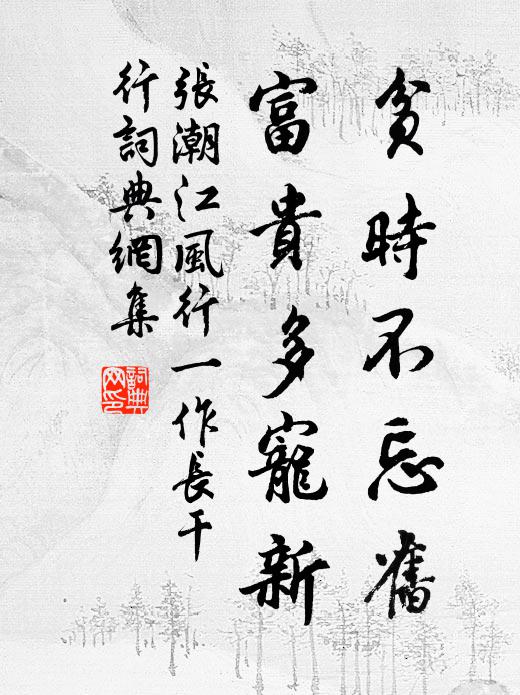 貧時不忘舊
富貴多寵新
張潮江風行一作長干
行詞典網集
詞典
网印